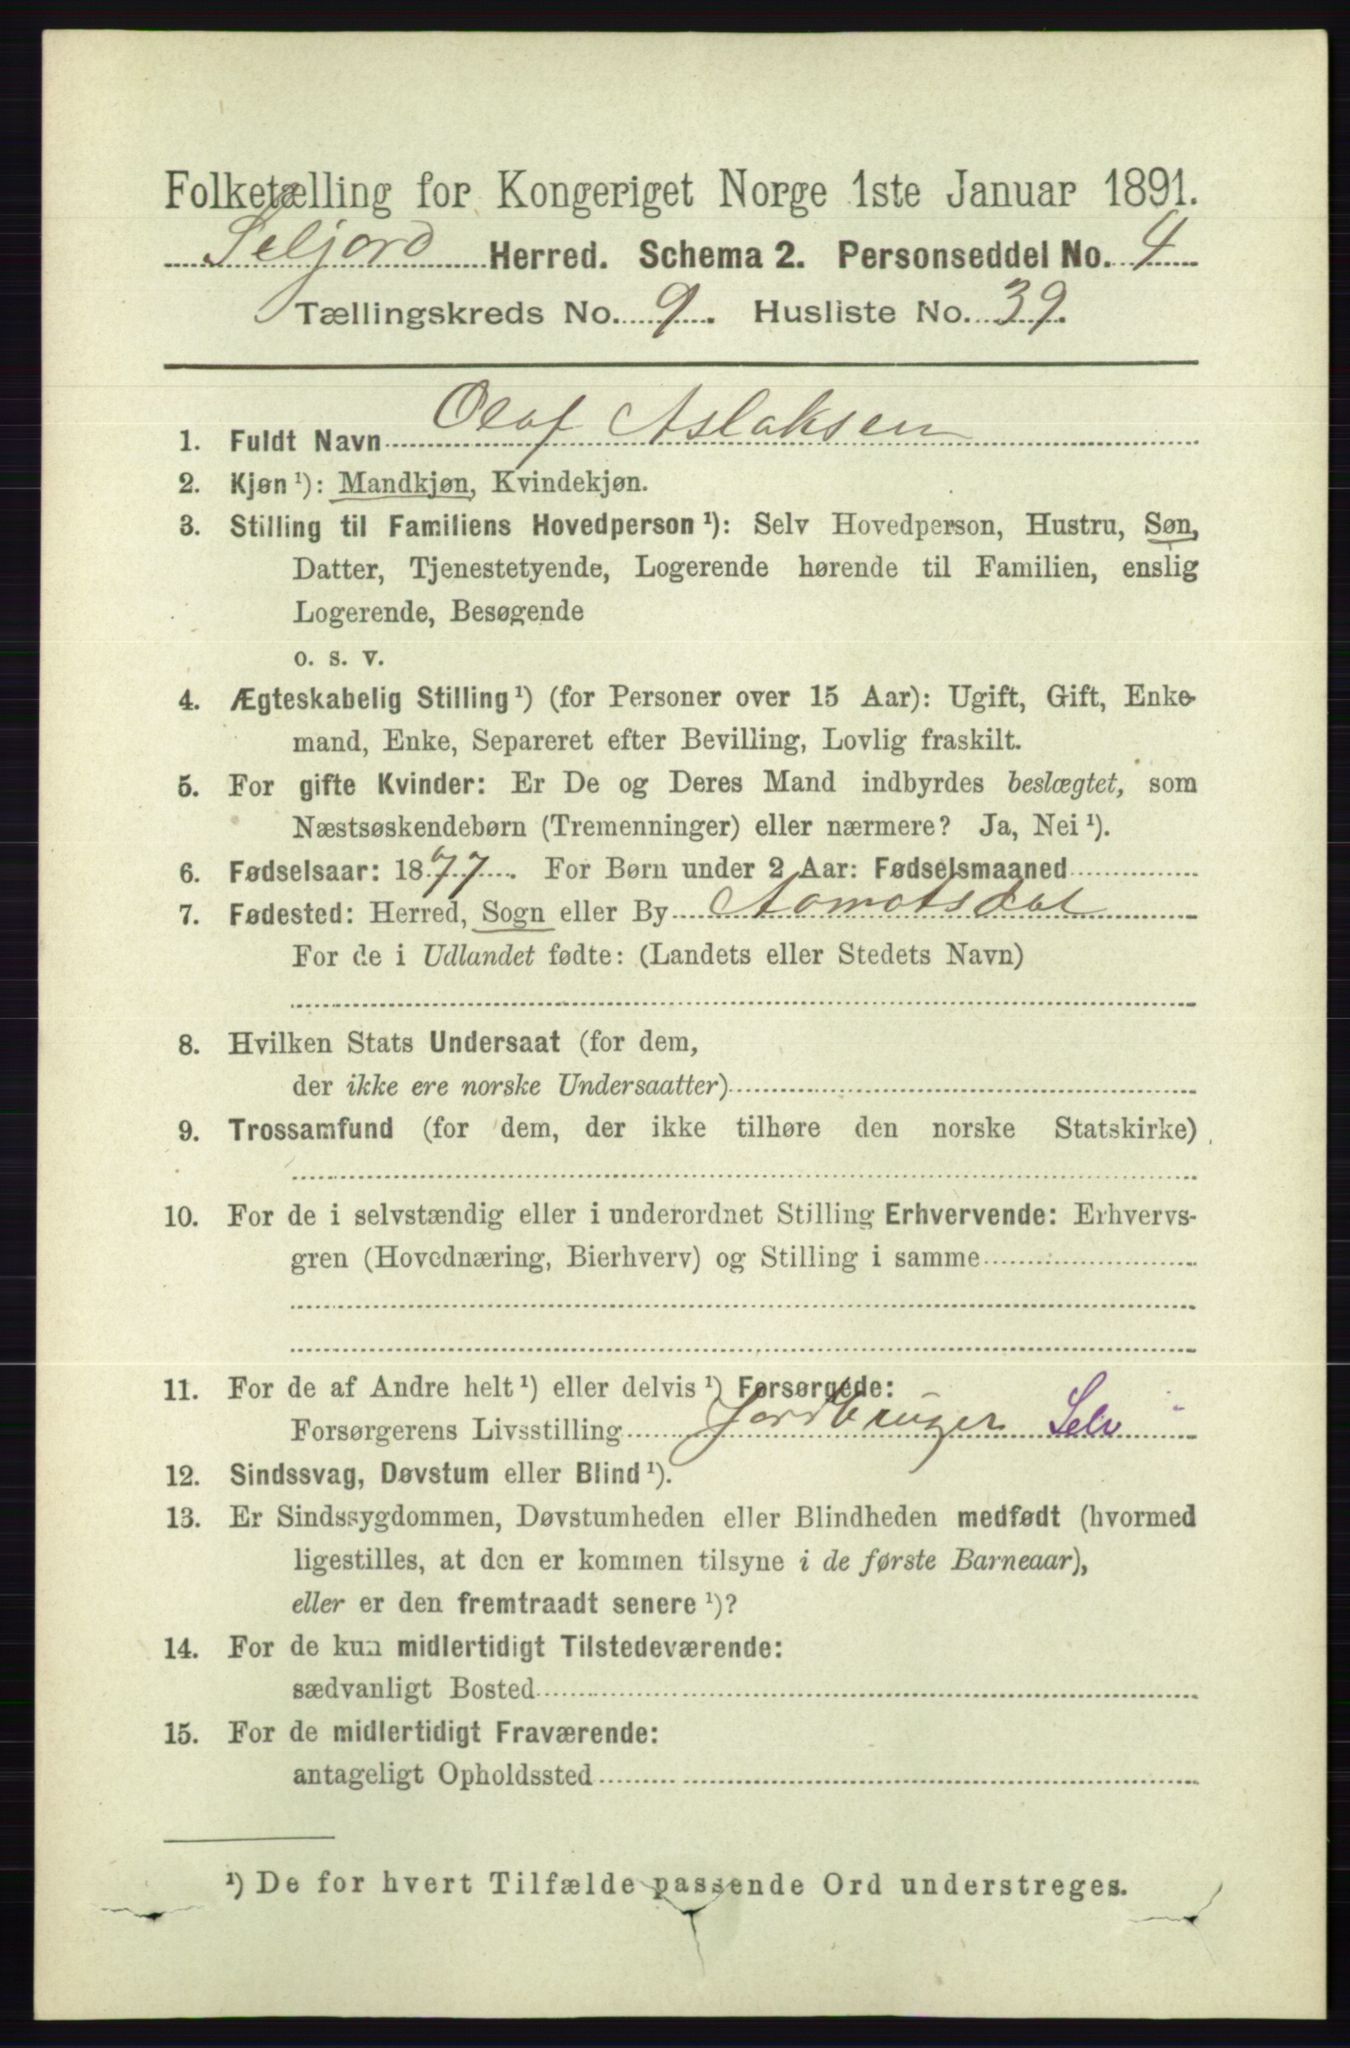 Folketælling for Kongeriget Norge 1ste Januar 1891.
Seljord Herred. Schema 2. Personseddel No. 4
Tællingskreds No. 9. Husliste No. 39.
1. Fuldt Navn Olaf Aslaksen
2. Kjøn ¹): Mandkjøn, Kvindekjøn.
3. Stilling til Familiens Hovedperson ¹): Selv Hovedperson, Hustru, Søn,
Datter, Tjenestetyende, Logerende hørende til Familien, enslig
Logerende, Besøgende
o. s. v.
4. Ægteskabelig Stilling ¹) (for Personer over 15 Aar): Ugift, Gift, Enke-
mand, Enke, Separeret efter Bevilling, Lovlig fraskilt.
5. For gifte Kvinder: Er De og Deres Mand indbyrdes beslægtet, som
Næstsøskendebørn (Tremenninger) eller nærmere? Ja, Nei ¹).
6. Fødselsaar: 1877. For Børn under 2 Aar: Fødselsmaaned
7. Fødested: Herred, Sogn eller By Aamotsdal
For de i Udlandet fødte: (Landets eller Stedets Navn)
8. Hvilken Stats Undersaat (for dem,
der ikke ere norske Undersaatter)
9. Trossamfund (for dem, der ikke tilhøre den norske Statskirke)
10. For de i selvstændig eller i underordnet Stilling Erhvervende: Erhvervs-
gren (Hovednæring, Bierhverv) og Stilling i samme
11. For de af Andre helt ¹) eller delvis ¹) Forsørgede:
Forsørgerens Livsstilling Jordbruger Selv
12. Sindssvag, Døvstum eller Blind ¹).
13. Er Sindssygdommen, Døvstumheden eller Blindheden medfødt (hvormed
ligestilles, at den er kommen tilsyne i de første Barneaar),
eller er den fremtraadt senere ¹)?
14. For de kun midlertidigt Tilstedeværende:
sædvanligt Bosted
15. For de midlertidigt Fraværende:
antageligt Opholdssted
¹) De for hvert Tilfælde passende Ord understreges.